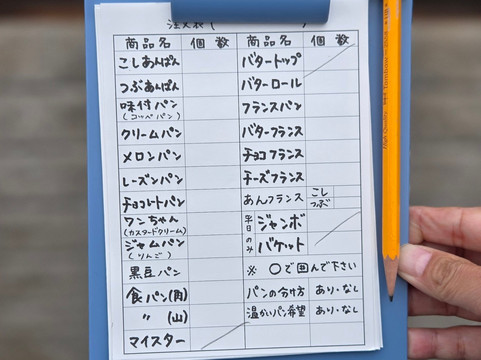 注文表(
商品名 個数 商品名 個数
こしあんぱん バタートップ
つぶあんぱん バターロール
味付パン フランスパン
(コッペパン)
クリームパン バターフランス
メロンパン チョコフランス
レーズンパン チーズフランス
チョコレートパン あんフランス こし
つぶ
ワンちゃん 平日のみ ジャンボ
(カスタードクリーム)
ジャムパン バケット
(りんご)
黒豆パン ※ ○で囲んで下さい
食パン(角) パンの分け方 あり・なし
〃 (山) 温かいパン希望 あり・なし
マイスター